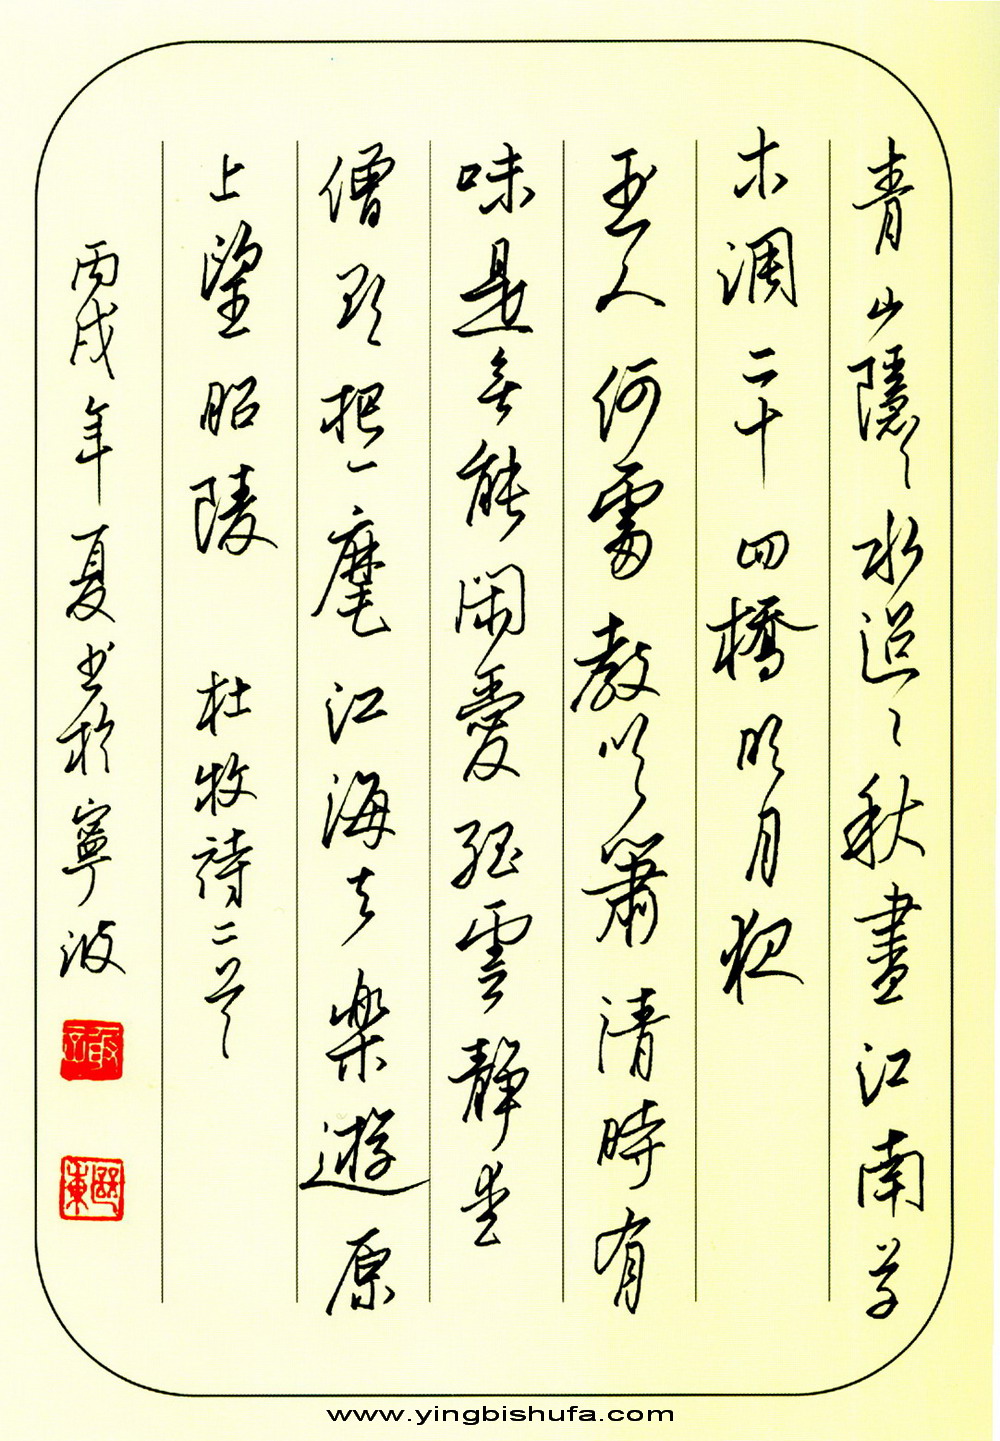 青山隱々水迢々秋盡江南草
木凋二十四橋明月夜
玉人何處教吹簫清時有
味是無能閑愛孤雲静愛
僧欲把一麾江海去樂遊原
上望昭陵 杜牧詩二首
丙戌年夏書於寧波
www.yingbishufa.com